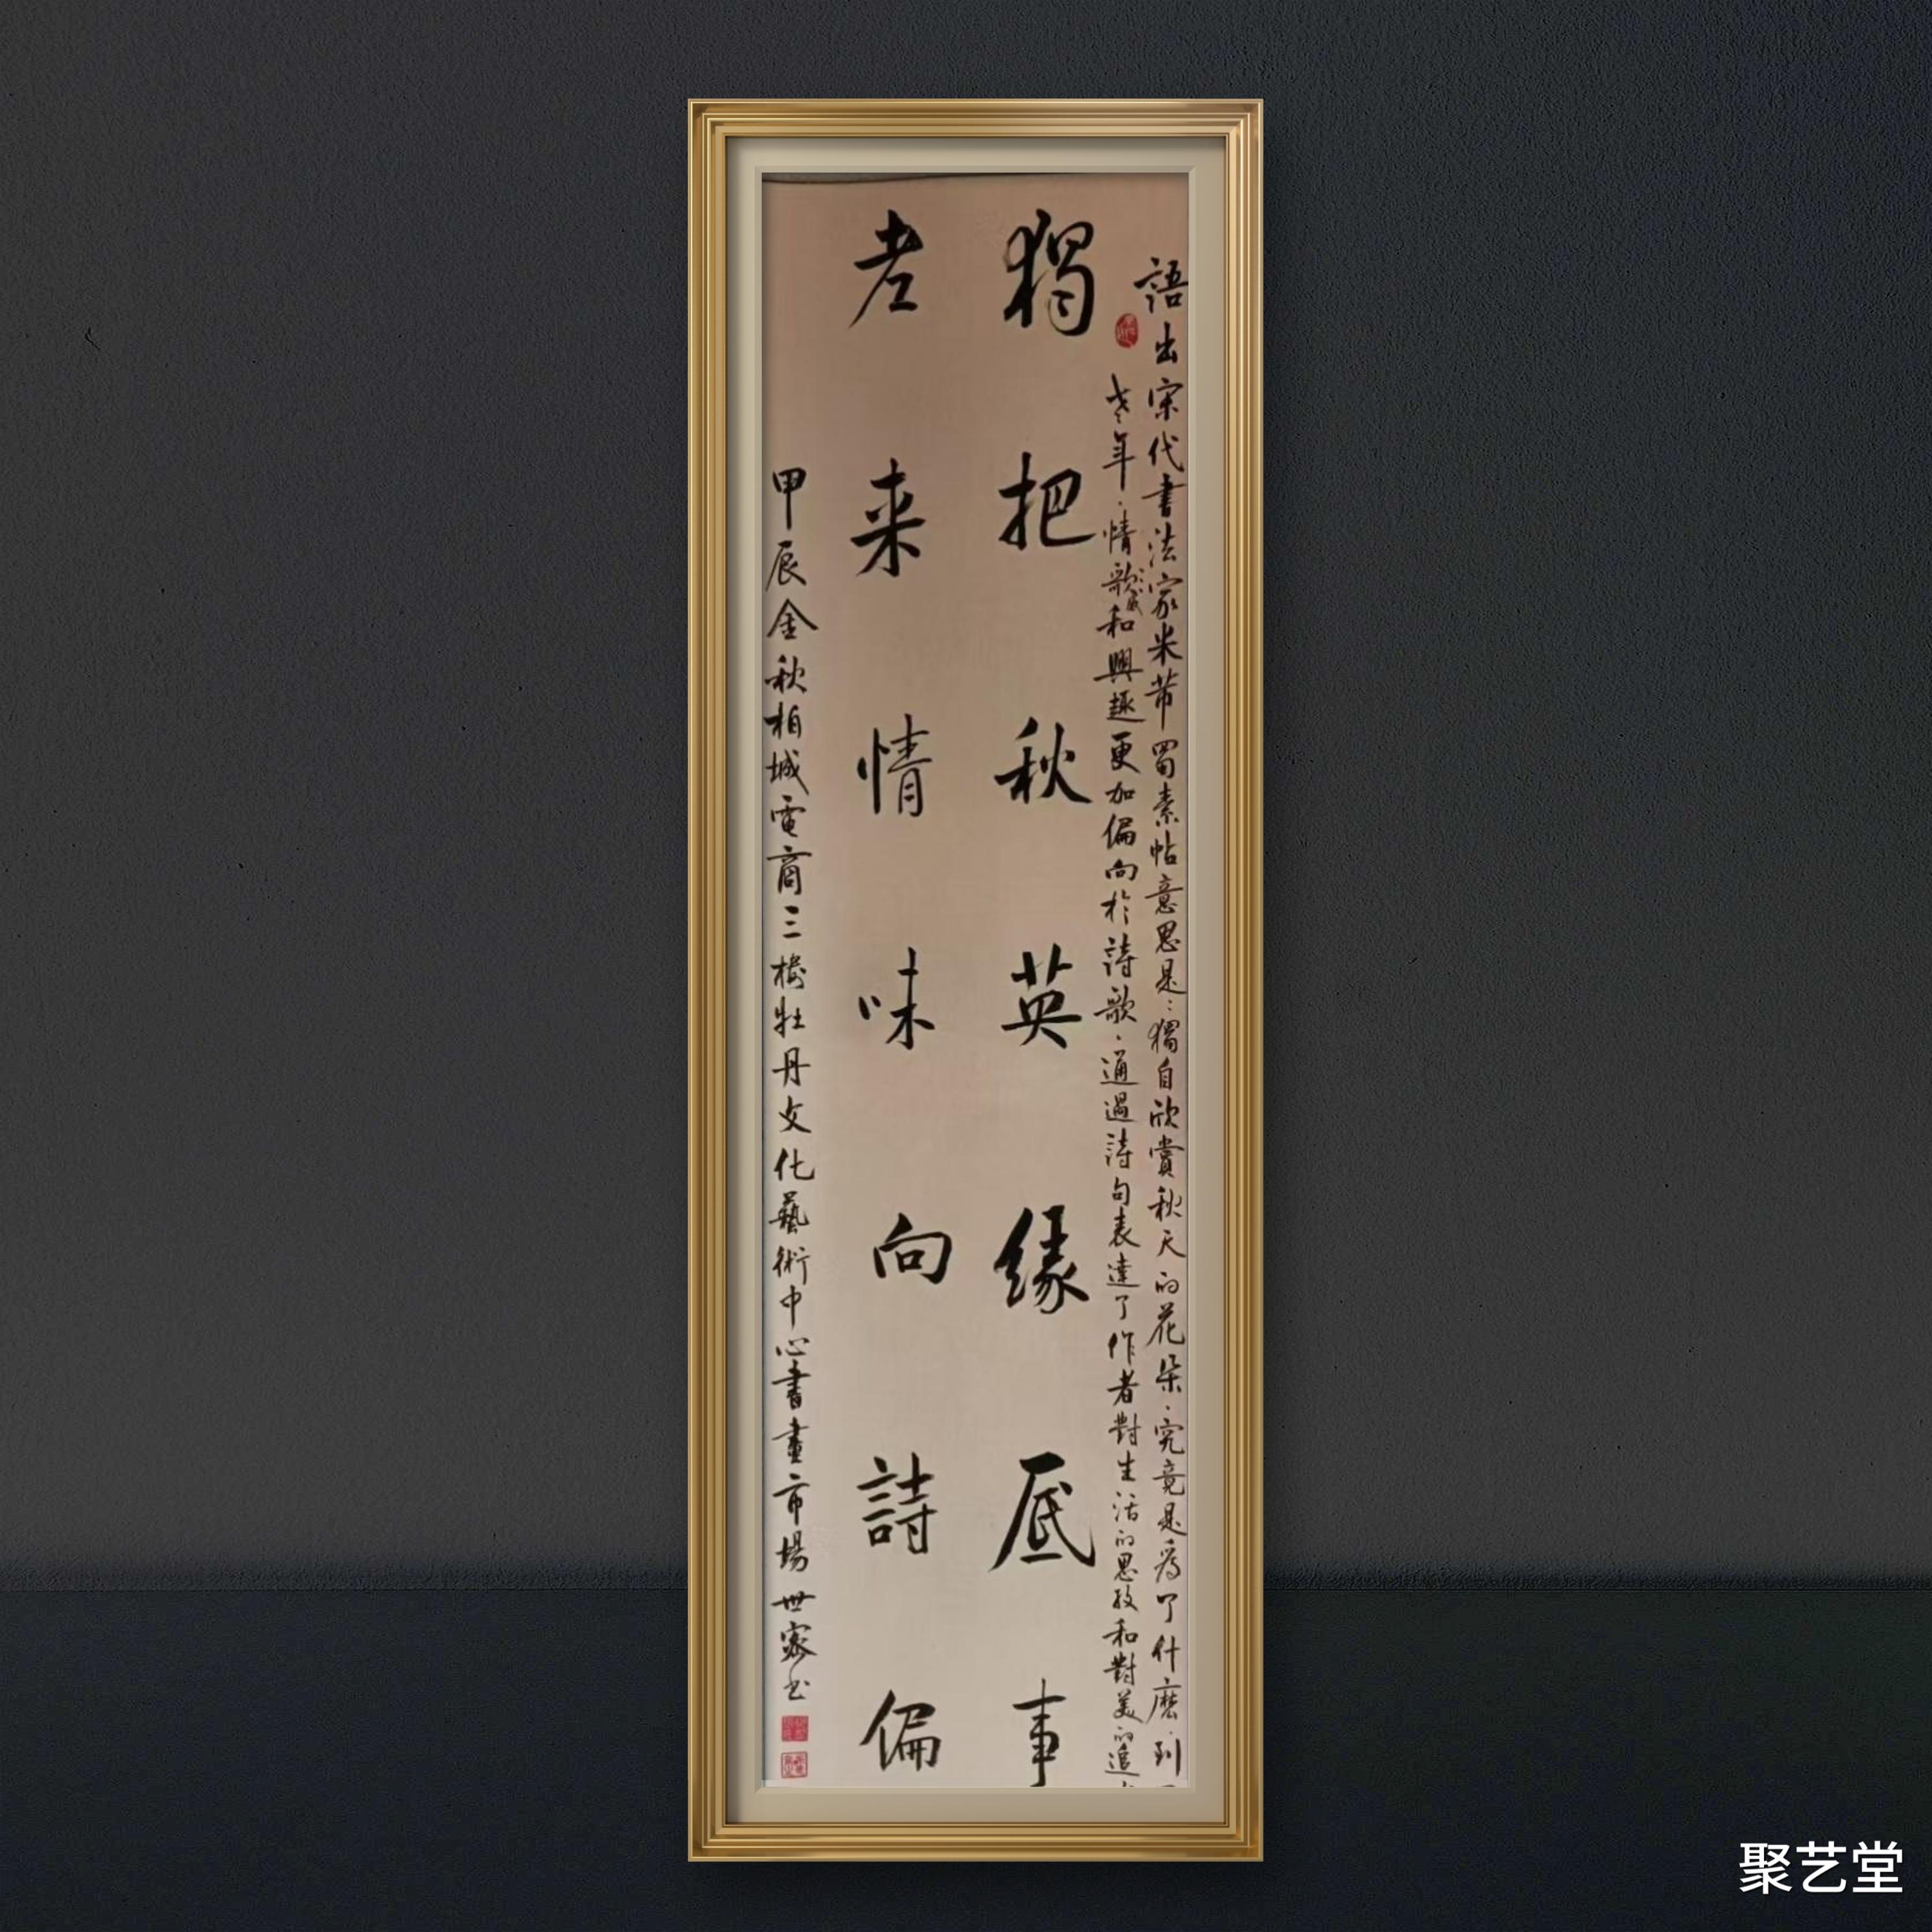 語出宋代書法家米芾蜀素帖意思是：獨自欣賞秋天的花朵，究竟是為了什麽，到了
老年，情感和興趣更加偏向於詩歌，通過詩句表達了作者對生活的思考和對美的追
獨把秋英緣底事
老来情味向詩偏
甲辰金秋柏城電商三樓牡丹文化藝術中心書畫市場世家书
聚艺堂